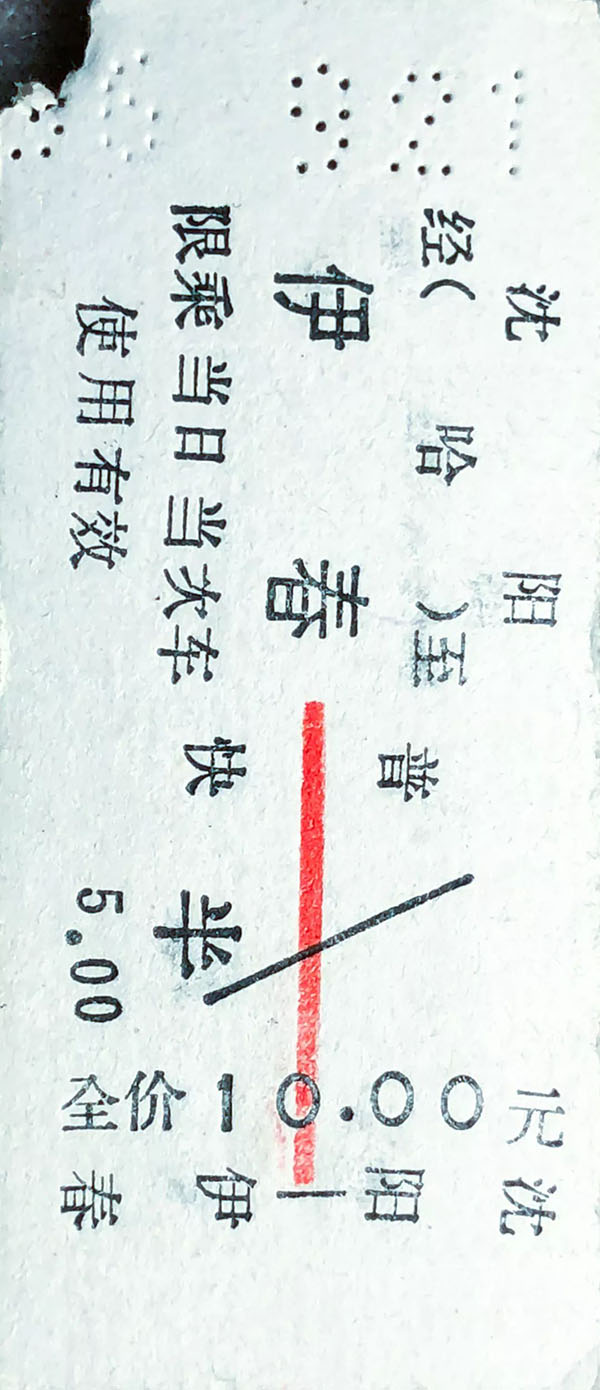 沈阳
经(哈)至
伊春
限乘当日当次车
使用有效
普/快
半
5.00
全价10.00元
沈阳—伊春